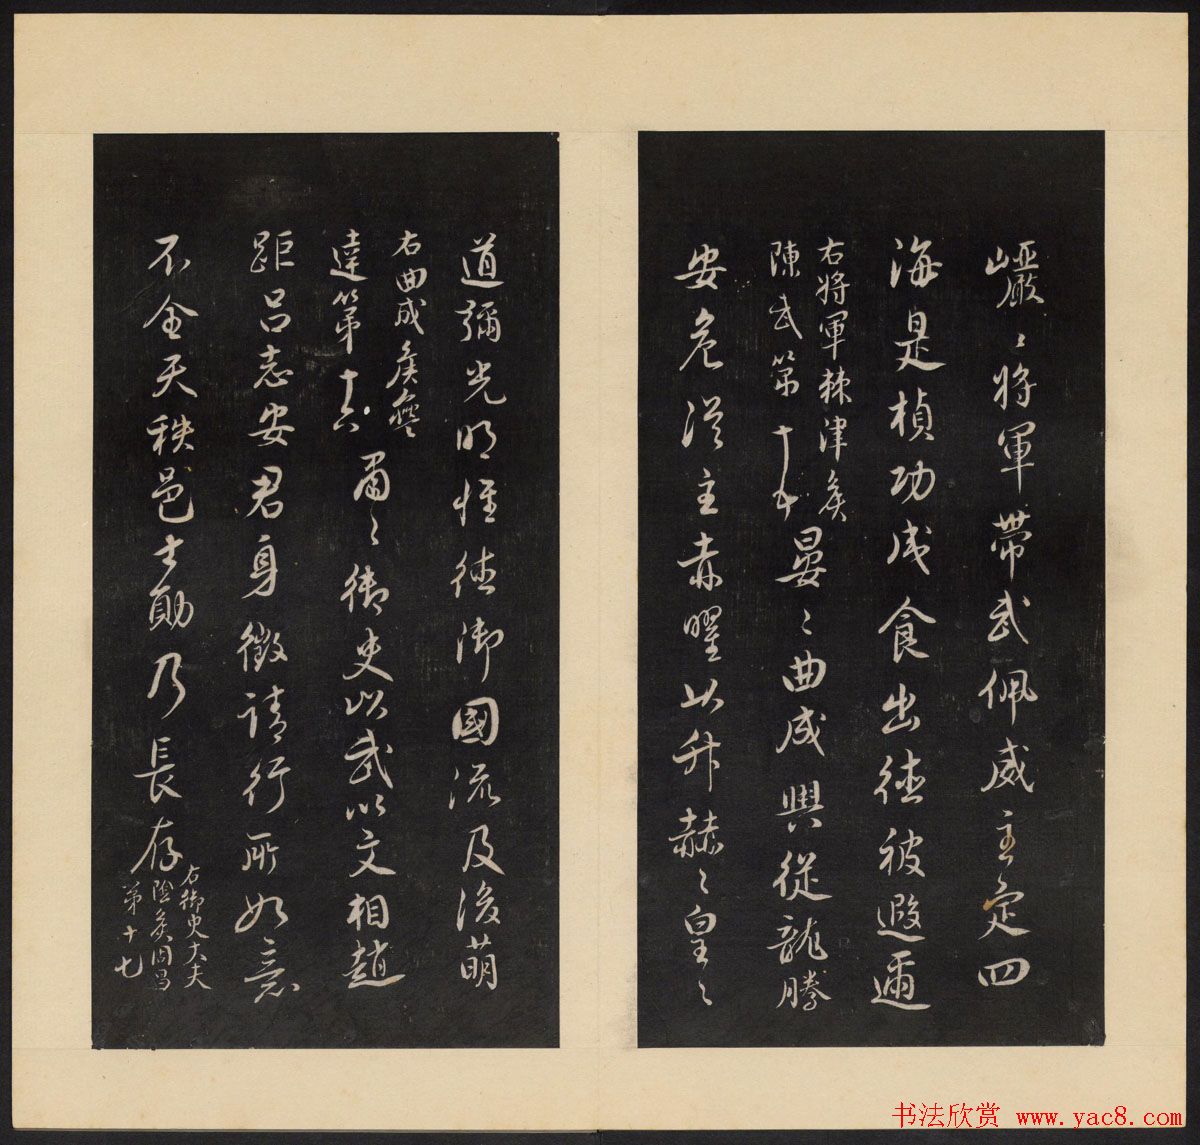 巗〻將軍帶武佩威主定四
海是楨功成食出德被遐邇
右將軍棘津侯
陳武第十五
晏〻曲成輿從龍騰
安危從主赤曜以升赫〻皇〻
道彌光明惟德御國流及後萌
右曲成侯蠱
達第十六
肅〻御史以武以文相趙
距呂志安君身徵請行所如意
不全天秩邑士勛乃長存
右御史大夫
陰侯周昌
第十七
书法欣赏 www.yac8.com